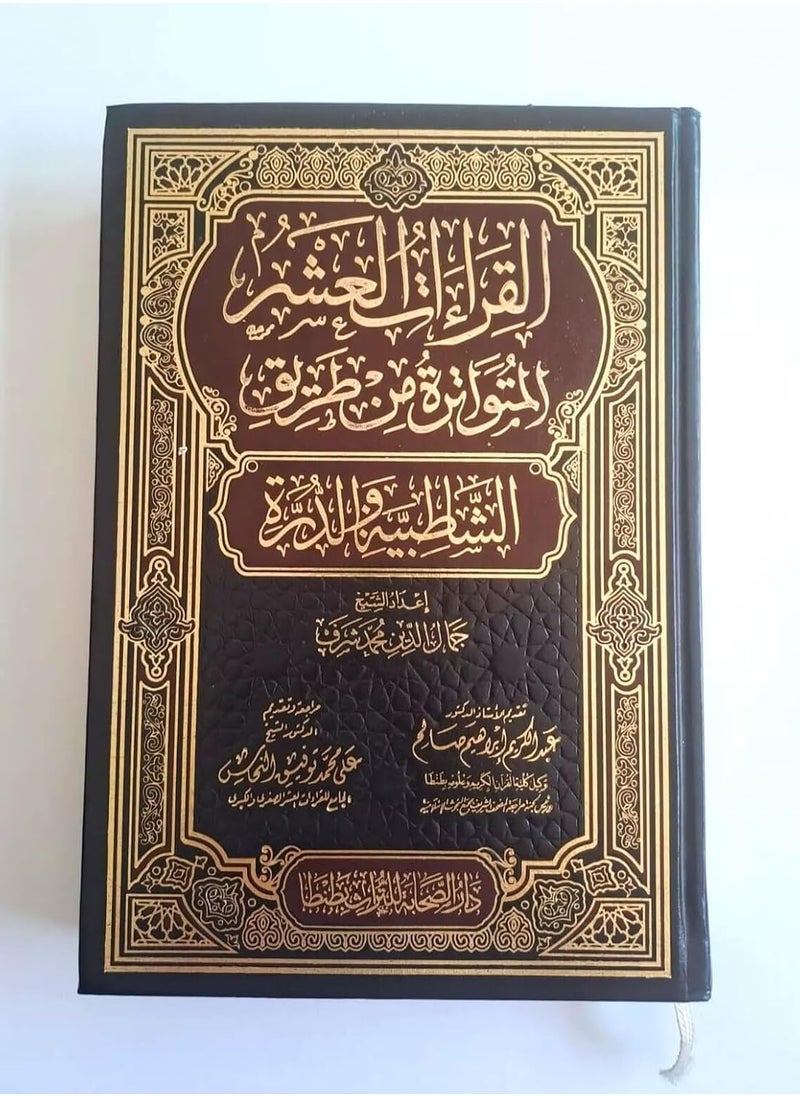 القِرَاءَاتُ العَشْرُ
المُتَوَاتِرَةُ مِنْ طَرِيقِ
الشَّاطِبِيَّةِ وَالدُّرَّةِ
إعْدَادُ الشَّيْخِ
جمَالُ الدِّينِ مُحمَّد شرَف
تقديم الأستاذ الدكتور
عبد الكريم إبراهيم صالح
وكيل كلية القرآن الكريم وعلومه بطنطا
مراجعة وتقديم
الدكتور الشيخ
على محمد توفيق النحاس
الجامع للقراءات العشر الصغرى والكبرى
دَارُ الصَّحَابَةِ للتُّرَاثِ بِطَنْطَا